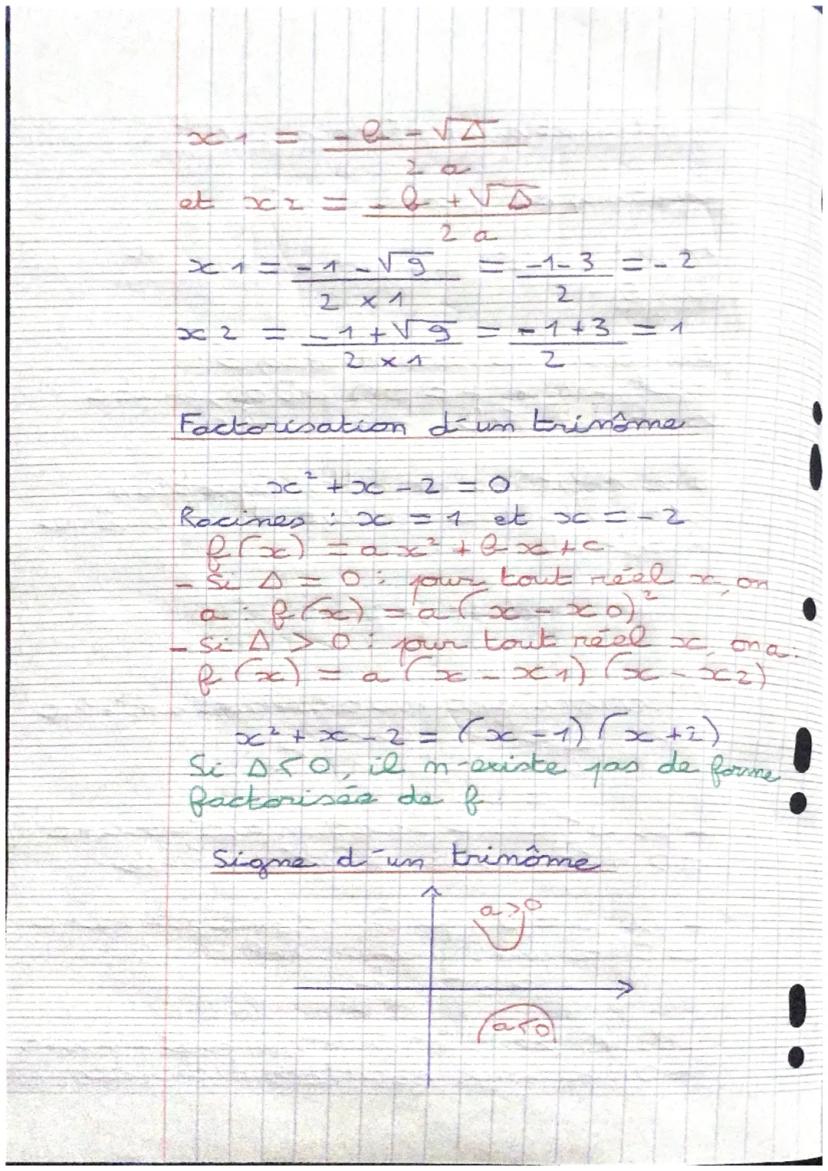 x1 = (-b - √Δ) / 2a
et x2 = (-b + √Δ) / 2a
x1 = (-1 - √9) / (2 × 1) = (-1 - 3) / 2 = -2
x2 = (-1 + √9) / (2 × 1) = (-1 + 3) / 2 = 1
Factorisation d'un trinôme
x² + x - 2 = 0
Racines : x = 1 et x = -2
f(x) = ax² + bx + c
- Si Δ = 0 : pour tout réel x, on
a : f(x) = a(x - x0)²
- Si Δ > 0 : pour tout réel x, on a.
f(x) = a(x - x1)(x - x2)
x² + x - 2 = (x - 1)(x + 2)
Si Δ < 0, il n'existe pas de forme
factorisée de f.
Signe d'un trinôme
a>0
a<0